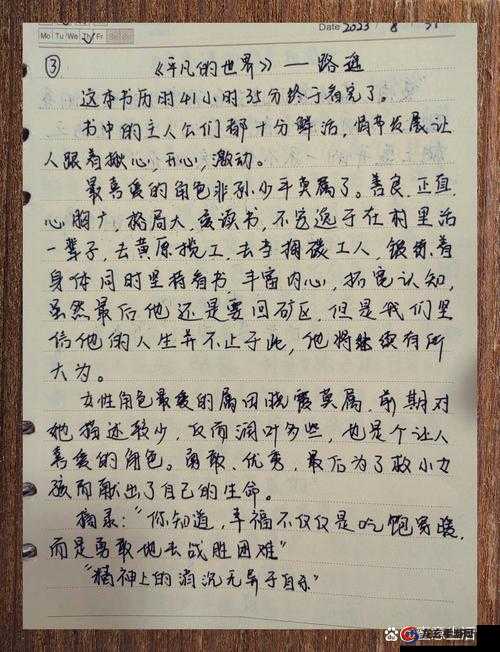 Mo Tu We Th Fr Sa Su
Date 2023 / 8 31
③
《平凡的世界》—路遥
这本书历时41小时35分终于看完了。
书中的主人公们都十分鲜活，情节发展让
人跟着揪心，开心，激动。
最喜爱的角色非孙少平莫属了。善良，正直，
心胸广，格局大，爱读书，不甘选于在村里活
一辈子，去黄原揽工，去当掏碳工人，锻练着
身体同时坚持看书，丰富内心，拓宽认知，
虽然最后他还是要回矿区，但是我们坚
信他的人生并不止于此，他将继续有所
大为。
女性角色最爱的属田晓霞莫属，前期对
她描述较少，反而润叶多些，也是个让人
喜爱的角色。勇敢、优秀，最后为了救小女
孩而献出了自己的生命。
摘录："你知道，幸福不仅仅是吃饱穿暖，
而是勇敢地去战胜困难"
"精神上的消沉无异于自杀"
Baidu贴吧